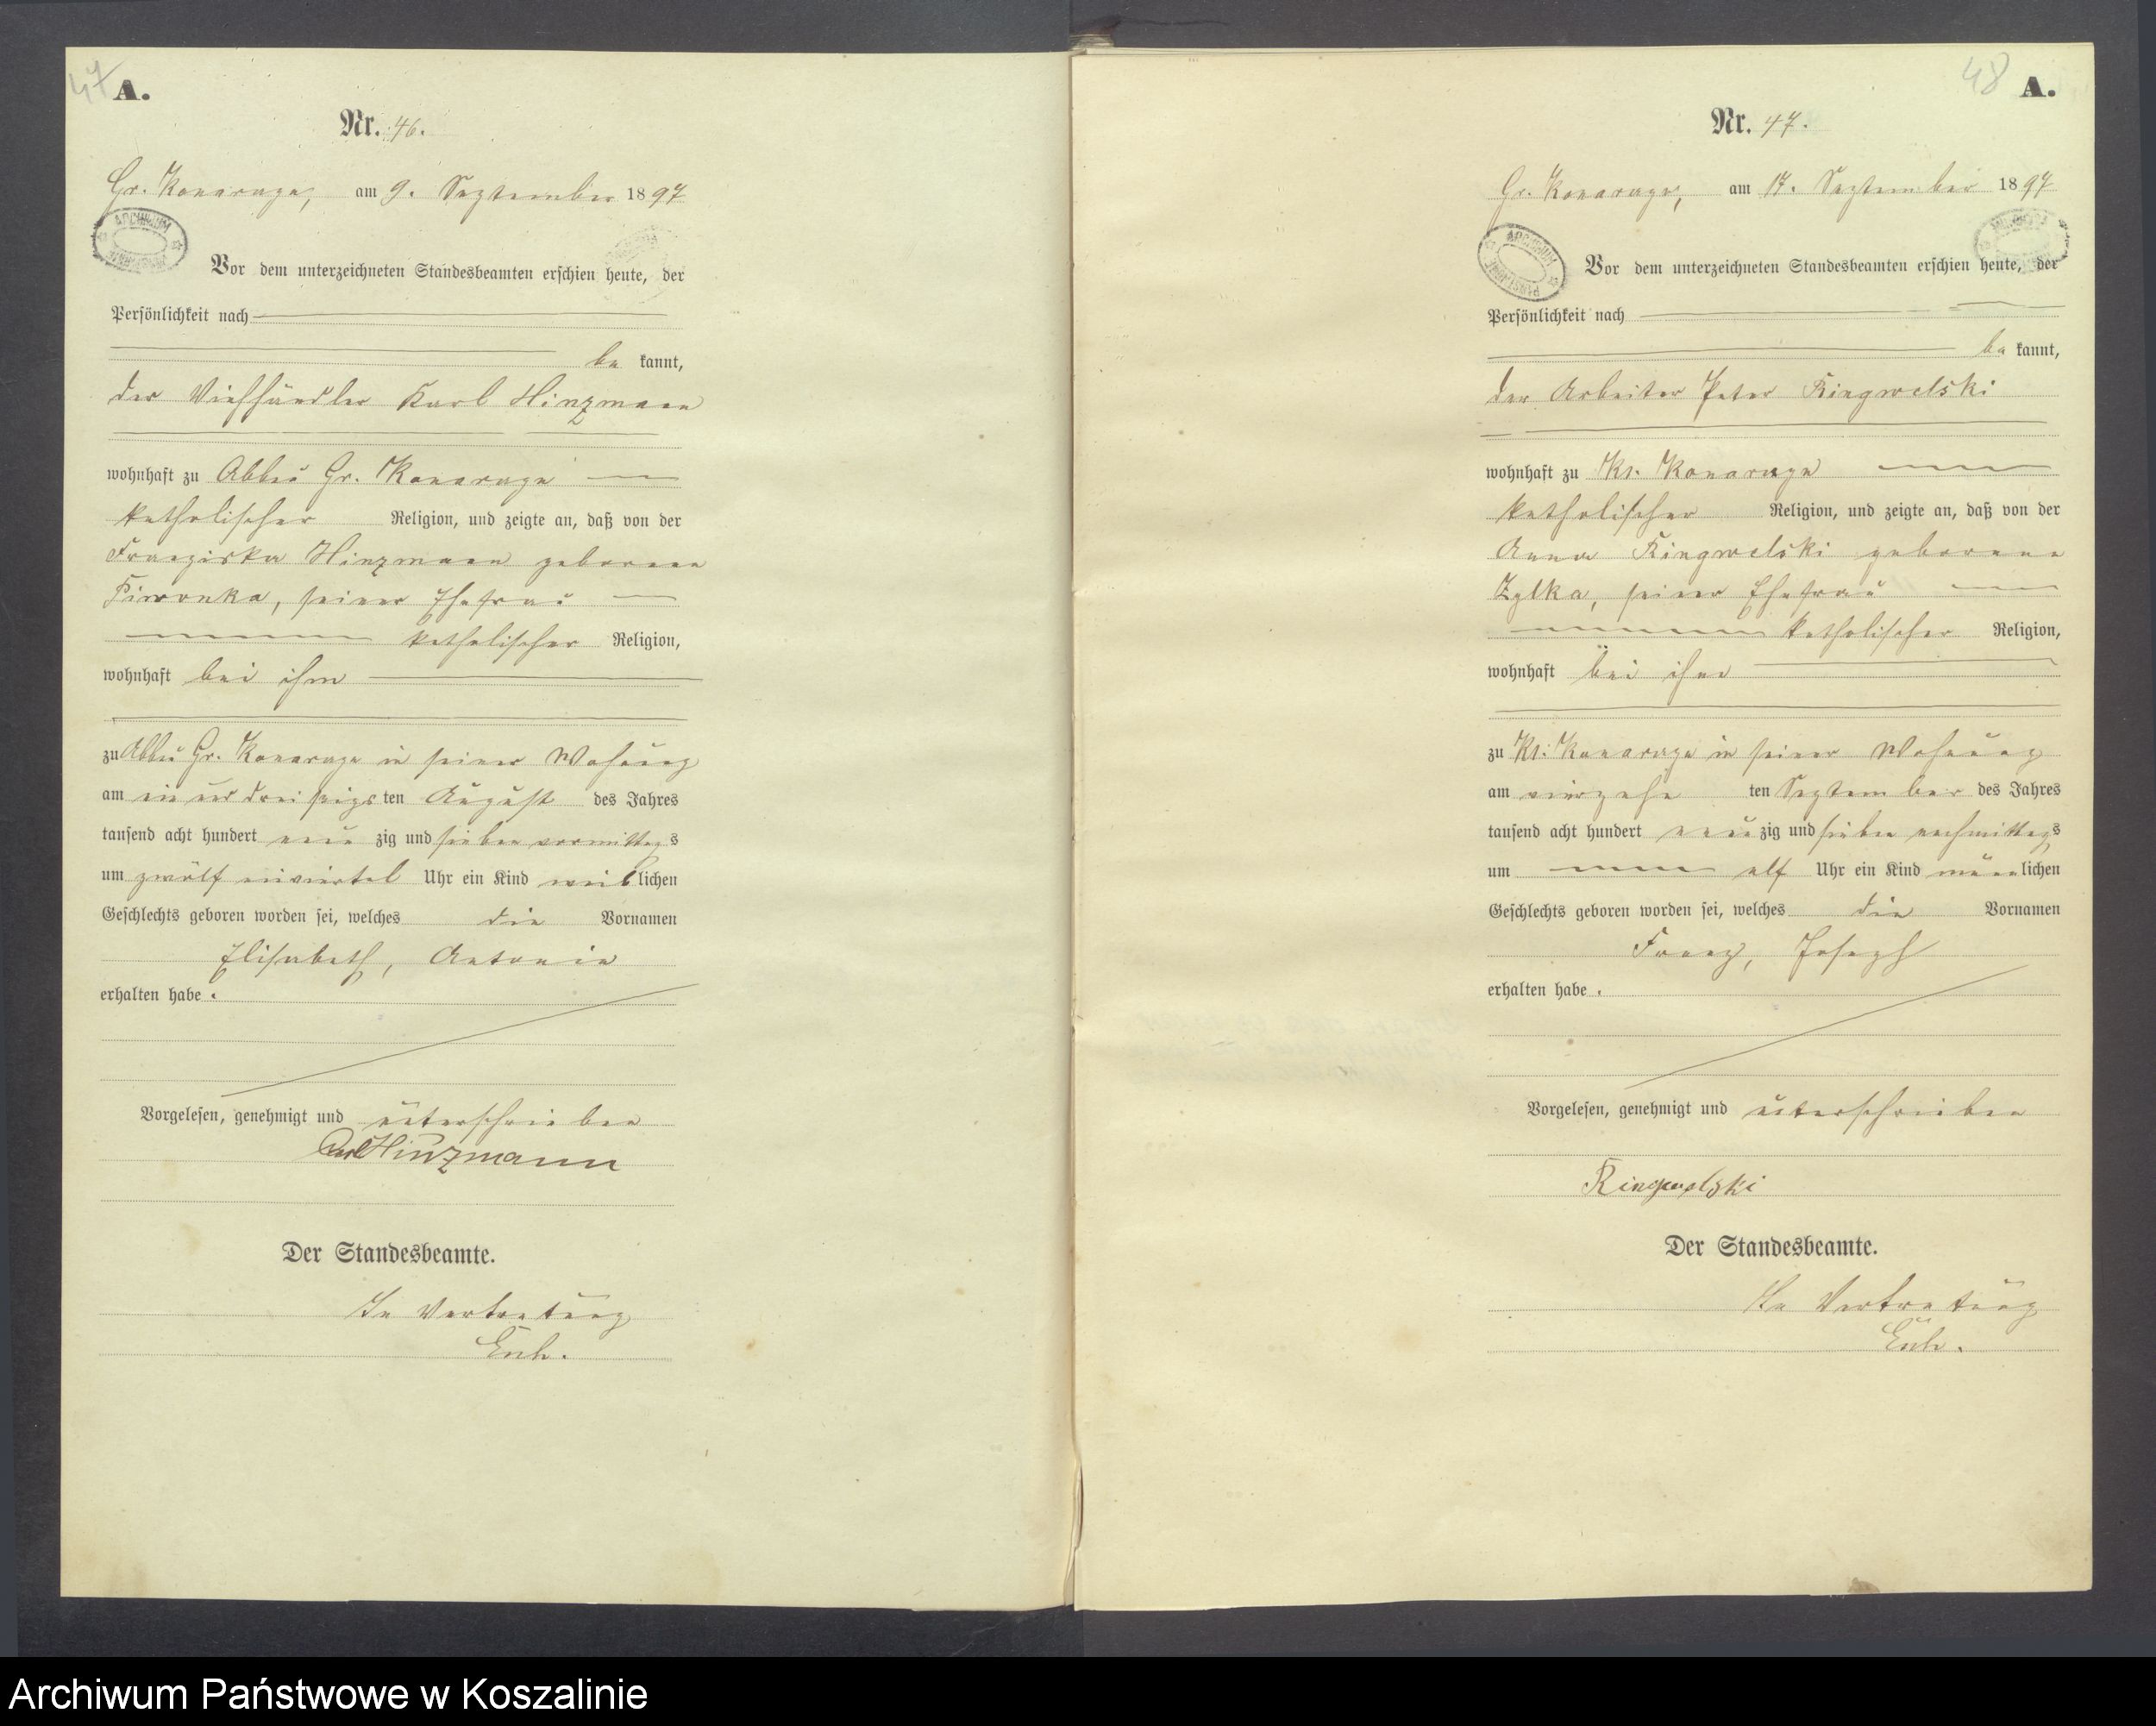 47 A.
Nr. 46.
Gr. Konarzyn, am 9. September 1897
ARCHIWUM
Vor dem unterzeichneten Standesbeamten erschien heute, der
Persönlichkeit nach
be kannt,
der Viehhändler Karl Hinzmann
wohnhaft zu Abbau Gr. Konarzyn
katholischer Religion, und zeigte an, daß von der
Franziska Hinzmann geborenen
Piwonka, seiner Ehefrau
katholischer Religion,
wohnhaft bei ihm
zu Abbau Gr. Konarzyn in seiner Wohnung
am ein und dreißigsten August des Jahres
tausend acht hundert neun zig und sieben vormittags
um zwölf einviertel Uhr ein Kind weiblichen
Geschlechts geboren worden sei, welches die Vornamen
Elisabeth, Antonie
erhalten habe.
Vorgelesen, genehmigt und unterschrieben
Carl Hinzmann
Der Standesbeamte.
In Vertretung
48 A.
Nr. 47.
Gr. Konarzyn, am 17. September 1897
ARCHIWUM
Vor dem unterzeichneten Standesbeamten erschien heute, der
Persönlichkeit nach
be kannt,
der Arbeiter Peter Ringwelski
wohnhaft zu Kl. Konarzyn
katholischer Religion, und zeigte an, daß von der
Anna Ringwelski geborene
Zylka, seiner Ehefrau
katholischer Religion,
wohnhaft bei ihm
zu Kl. Konarzyn in seiner Wohnung
am vierzehn ten September des Jahres
tausend acht hundert neun zig und sieben nachmittags
um elf Uhr ein Kind männlichen
Geschlechts geboren worden sei, welches die Vornamen
Franz, Joseph
erhalten habe.
Vorgelesen, genehmigt und unterschrieben
Ringwelski
Der Standesbeamte.
In Vertretung
Archiwum Państwowe w Koszalinie